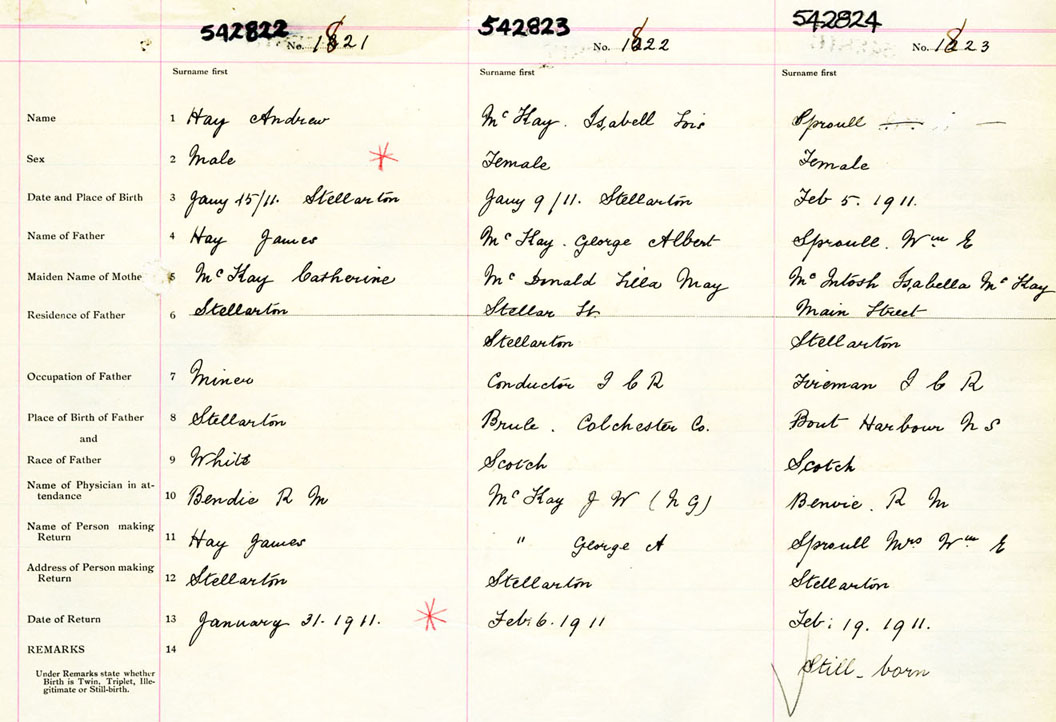 542822 No. 1821
542823 No. 1822
542824 No. 1823
Surname first Surname first Surname first
Name 1 Hay Andrew Mc Kay. Isabell Lois Sproull
Sex 2 Male Female Female
Date and Place of Birth 3 Jany 15/11. Stellarton Jany 9/11. Stellarton Feb 5. 1911.
Name of Father 4 Hay James Mc Kay. George Albert Sproull. Wm E
Maiden Name of Mothe 5 Mc Kay Catherine Mc Donald Lilla May Mc Intosh Isabella Mc Kay
Residence of Father 6 Stellarton Stellar St. Main Street
Stellarton Stellarton
Occupation of Father 7 Miner Conductor I C R Fireman I C R
Place of Birth of Father 8 Stellarton Brule. Colchester Co. Harbour N S
and
Race of Father 9 White Scotch Scotch
Name of Physician in at-
tendance 10 Bendie R M Mc Kay J W (N G) Benvie. R M
Name of Person making
Return 11 Hay James " George A Sproull Mrs Wm E
Address of Person making
Return 12 Stellarton Stellarton Stellarton
Date of Return 13 January 31-1911. Feb. 6. 1911 Feb: 19. 1911.
REMARKS 14
Under Remarks state whether
Birth is Twin, Triplet, Ille-
gitimate or Still-birth.
Still-born